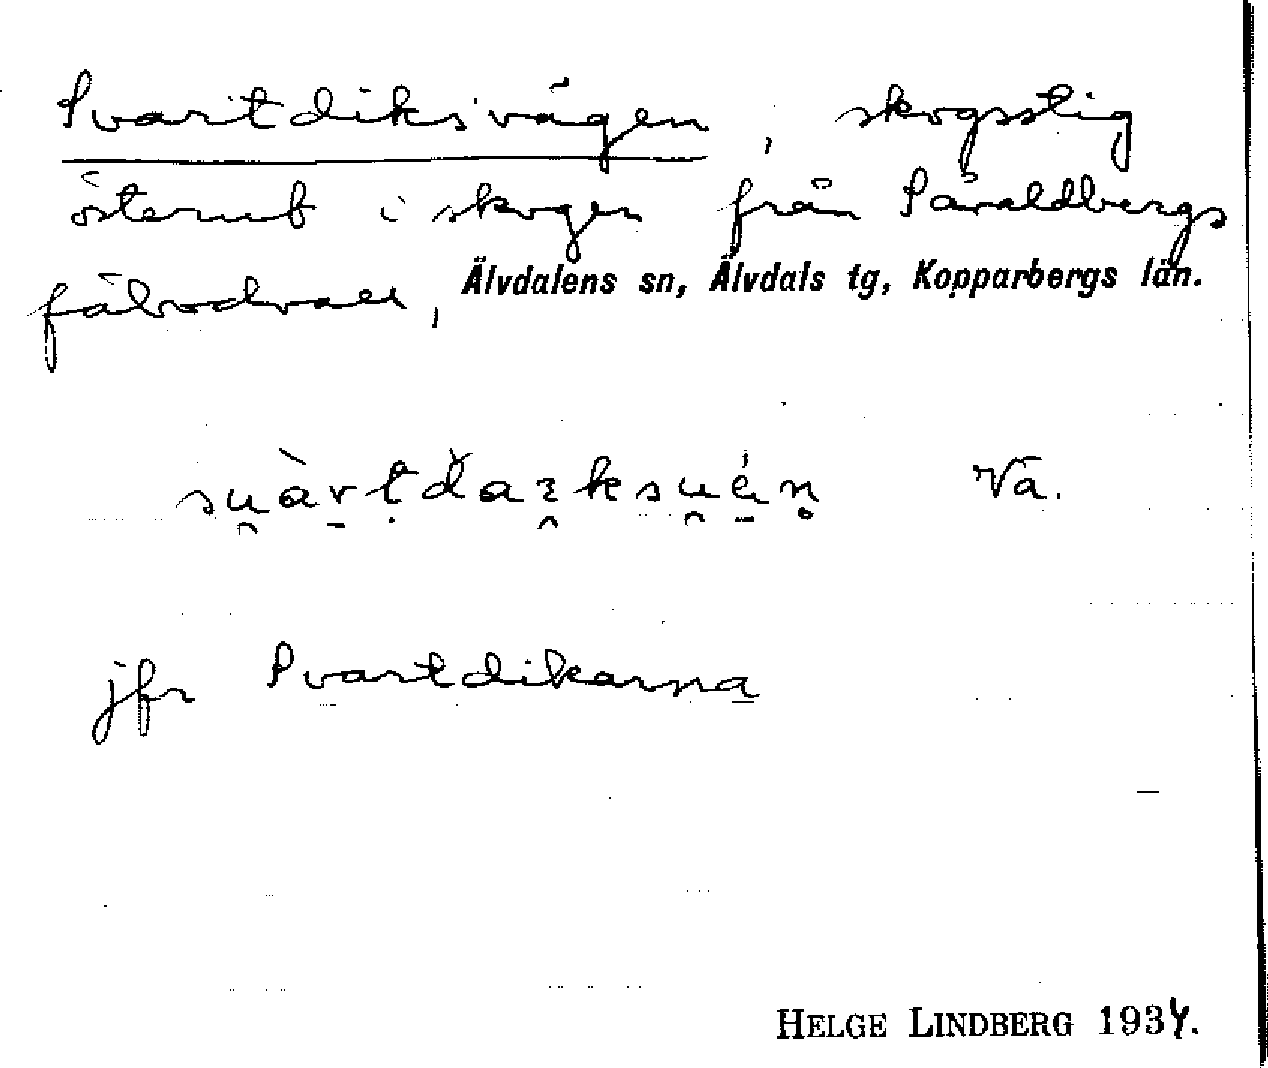 Svartdiksvägen, skogsstig
österut i skogen från Såraldbergs
fäbodvall, Älvdalens sn, Älvdals tg, Kopparbergs län.
Vä.
jfr Svartdikarna
HELGE LINDBERG 1934.